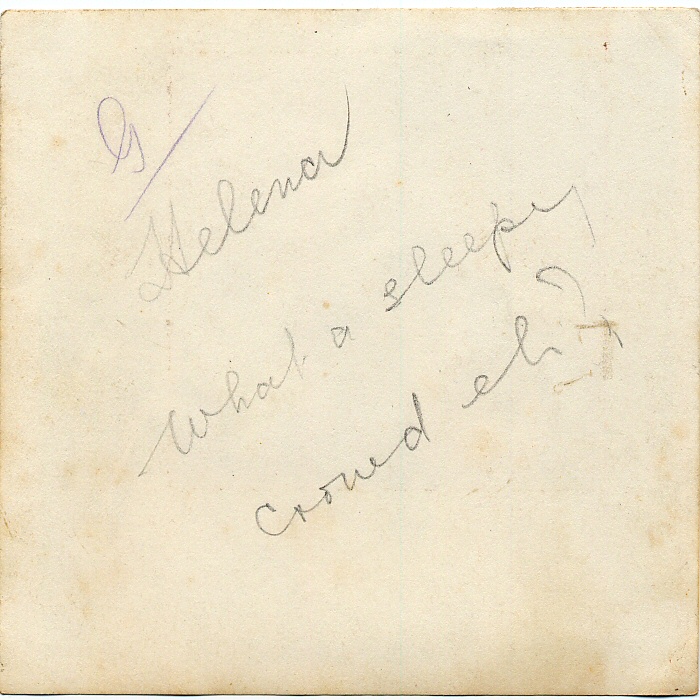 Helena
What a sleepy
crowd eh?